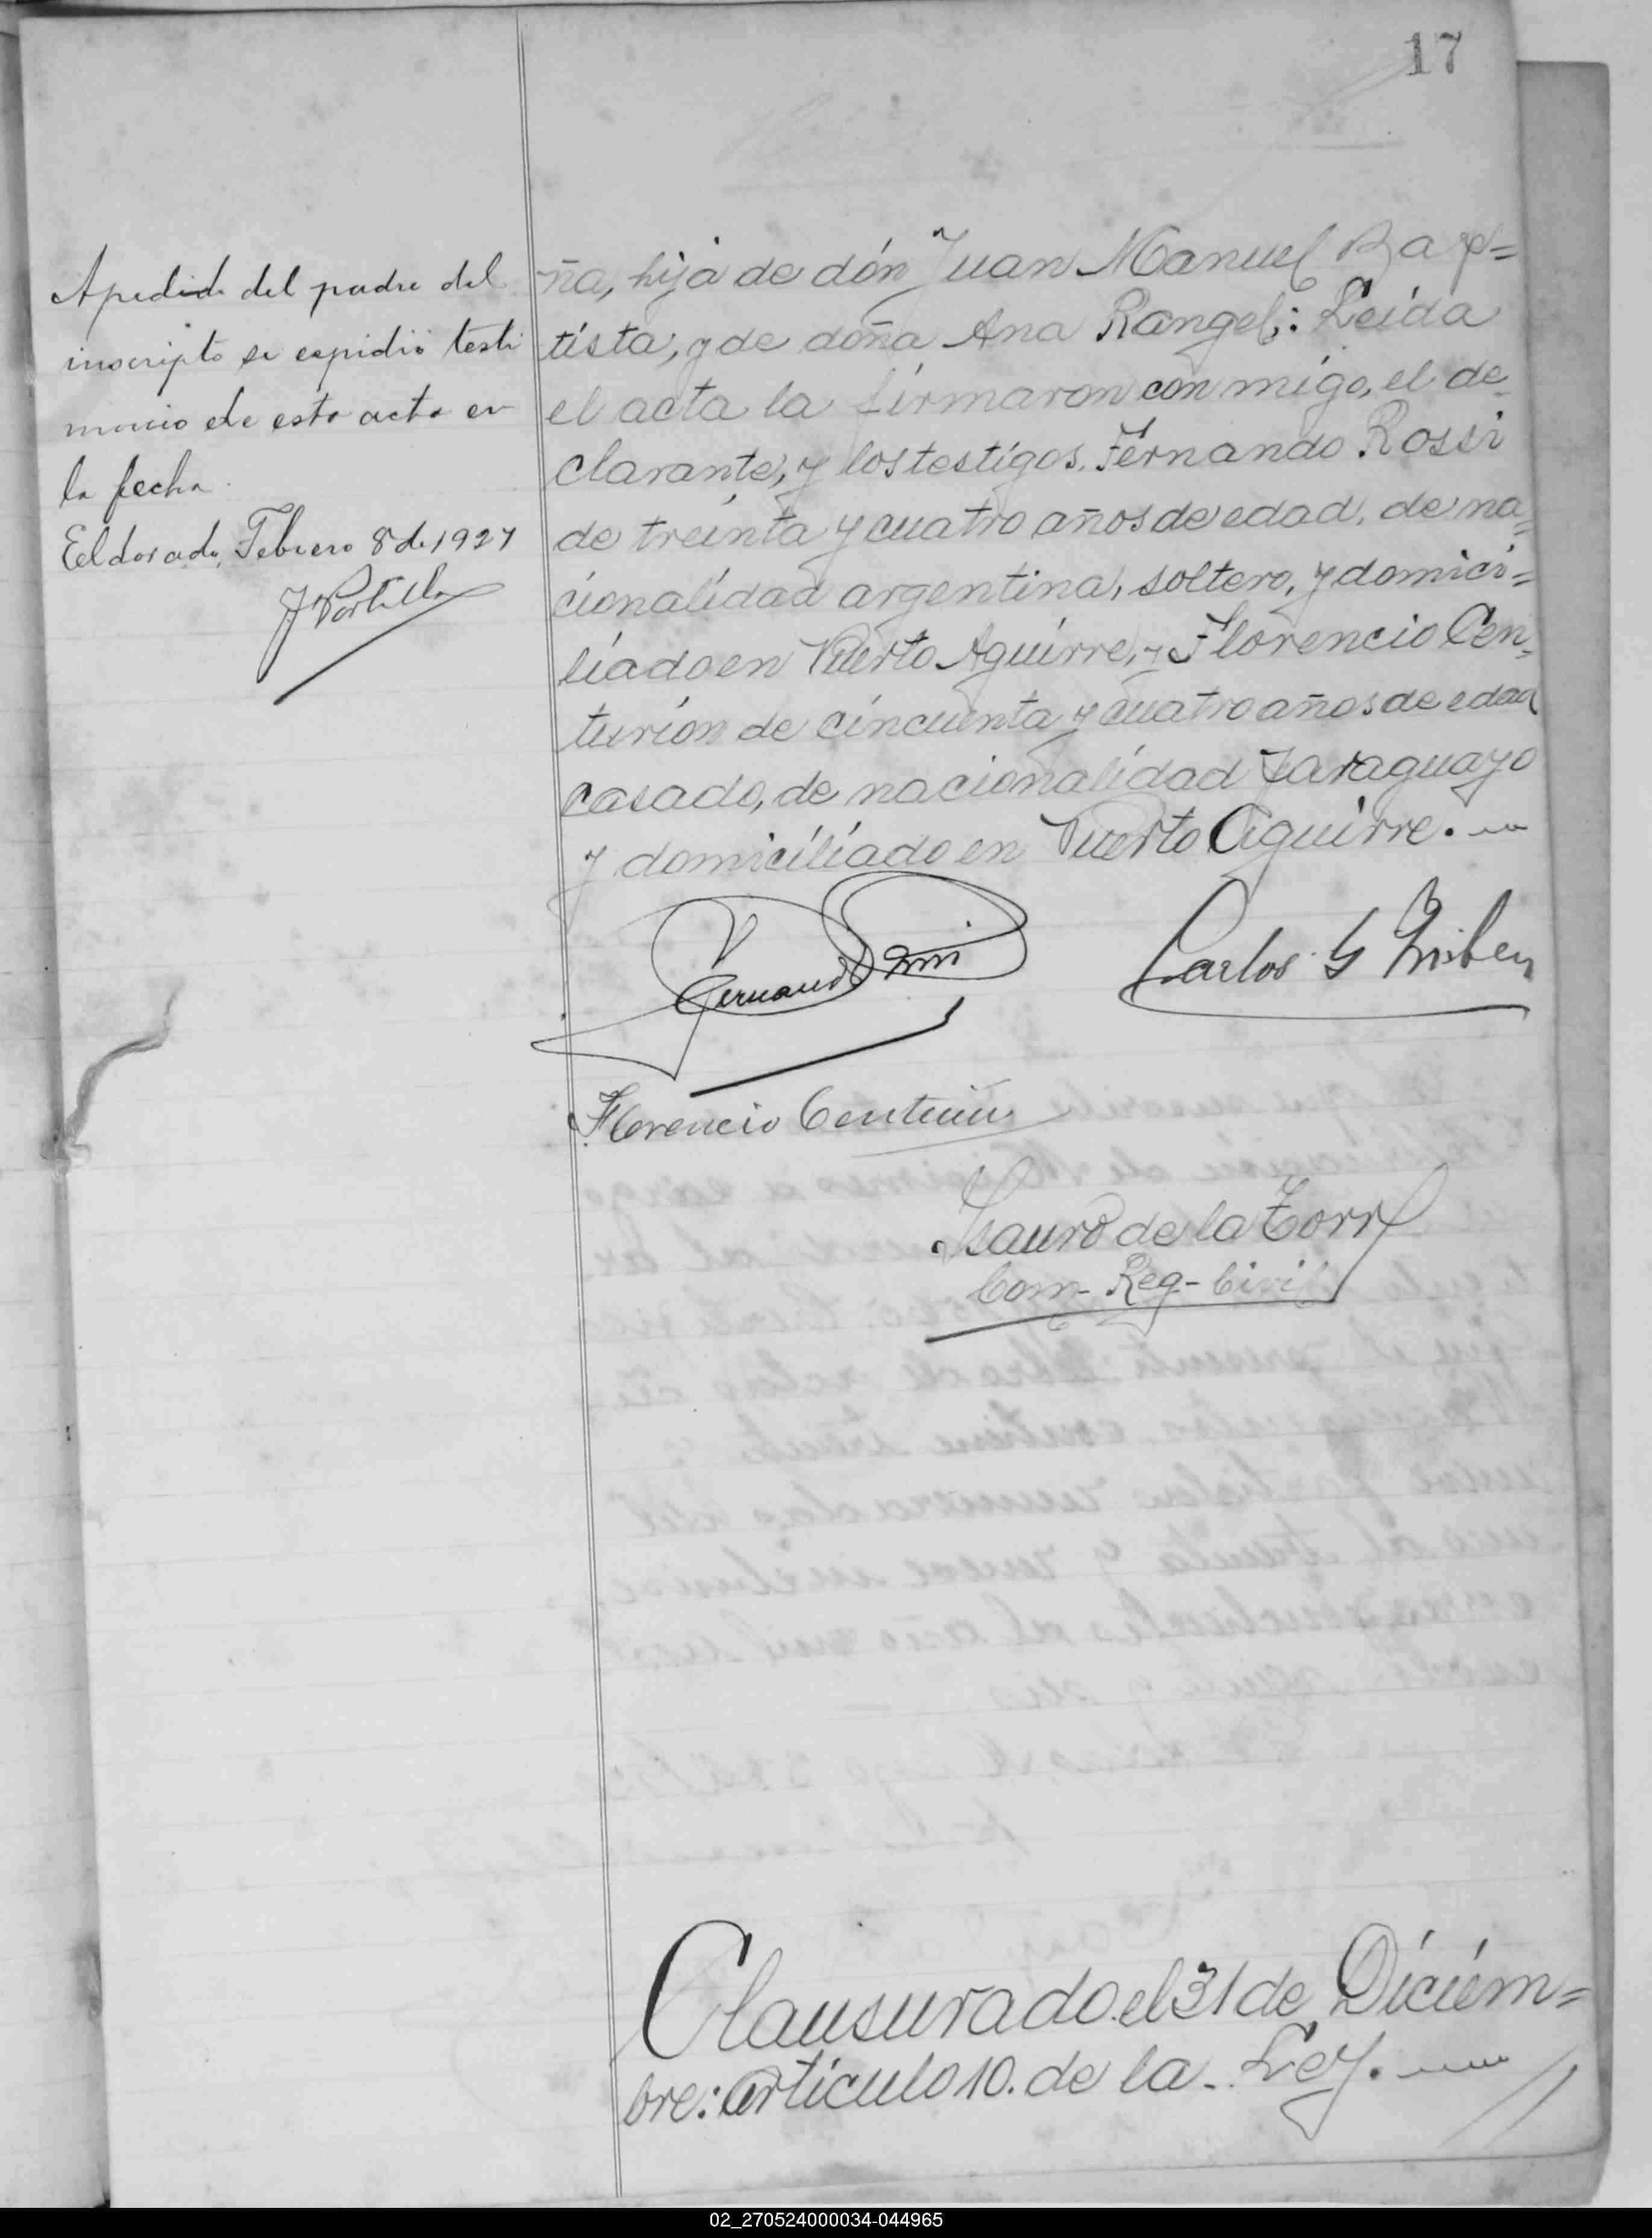 17
Apedido del padre del
inscripto se espidió testi
monio de esta acta en
la fecha.
Eeldorado, Febrero 8 de 1927
J Portilla
ña, hija de dón Juan Manuel Bap=
tista, y de doña Ana Rangel; : Leída
el acta la firmaron con migo, el de=
clarante, y los testigos. Fernando Rossi
de treinta y cuatro años de edad, de na=
cionalidad argentina, soltero, y domici=
liado en Puerto Aguirre, y Florencio Cen=
turion de cincuenta y cuatro años de edad
casado, de nacionalidad Paraguayo
y domiciliado en Puerto Aguirre. —
Fernando Rossi
Carlos G
Florencio Centurion
Isauro de la Torre
Com- Reg- Civil
Clausurado el 31 de Diciem=
bre: articulo 10. de la Ley. —
02_270524000034-044965